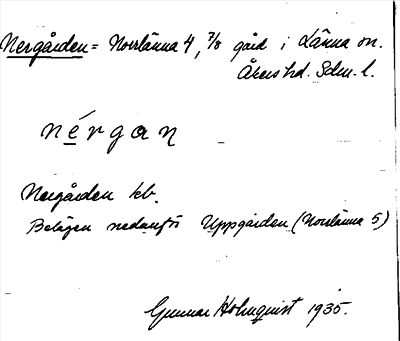 Nergården = Norrlänna 4, 7/8 gård i Länna sn.
Åkers hd. Sdm. l.
nérgan
Nergården kb.
Belägen nedanför Uppgården (Norrlänna 5)
Gunnar Holmquist 1935.